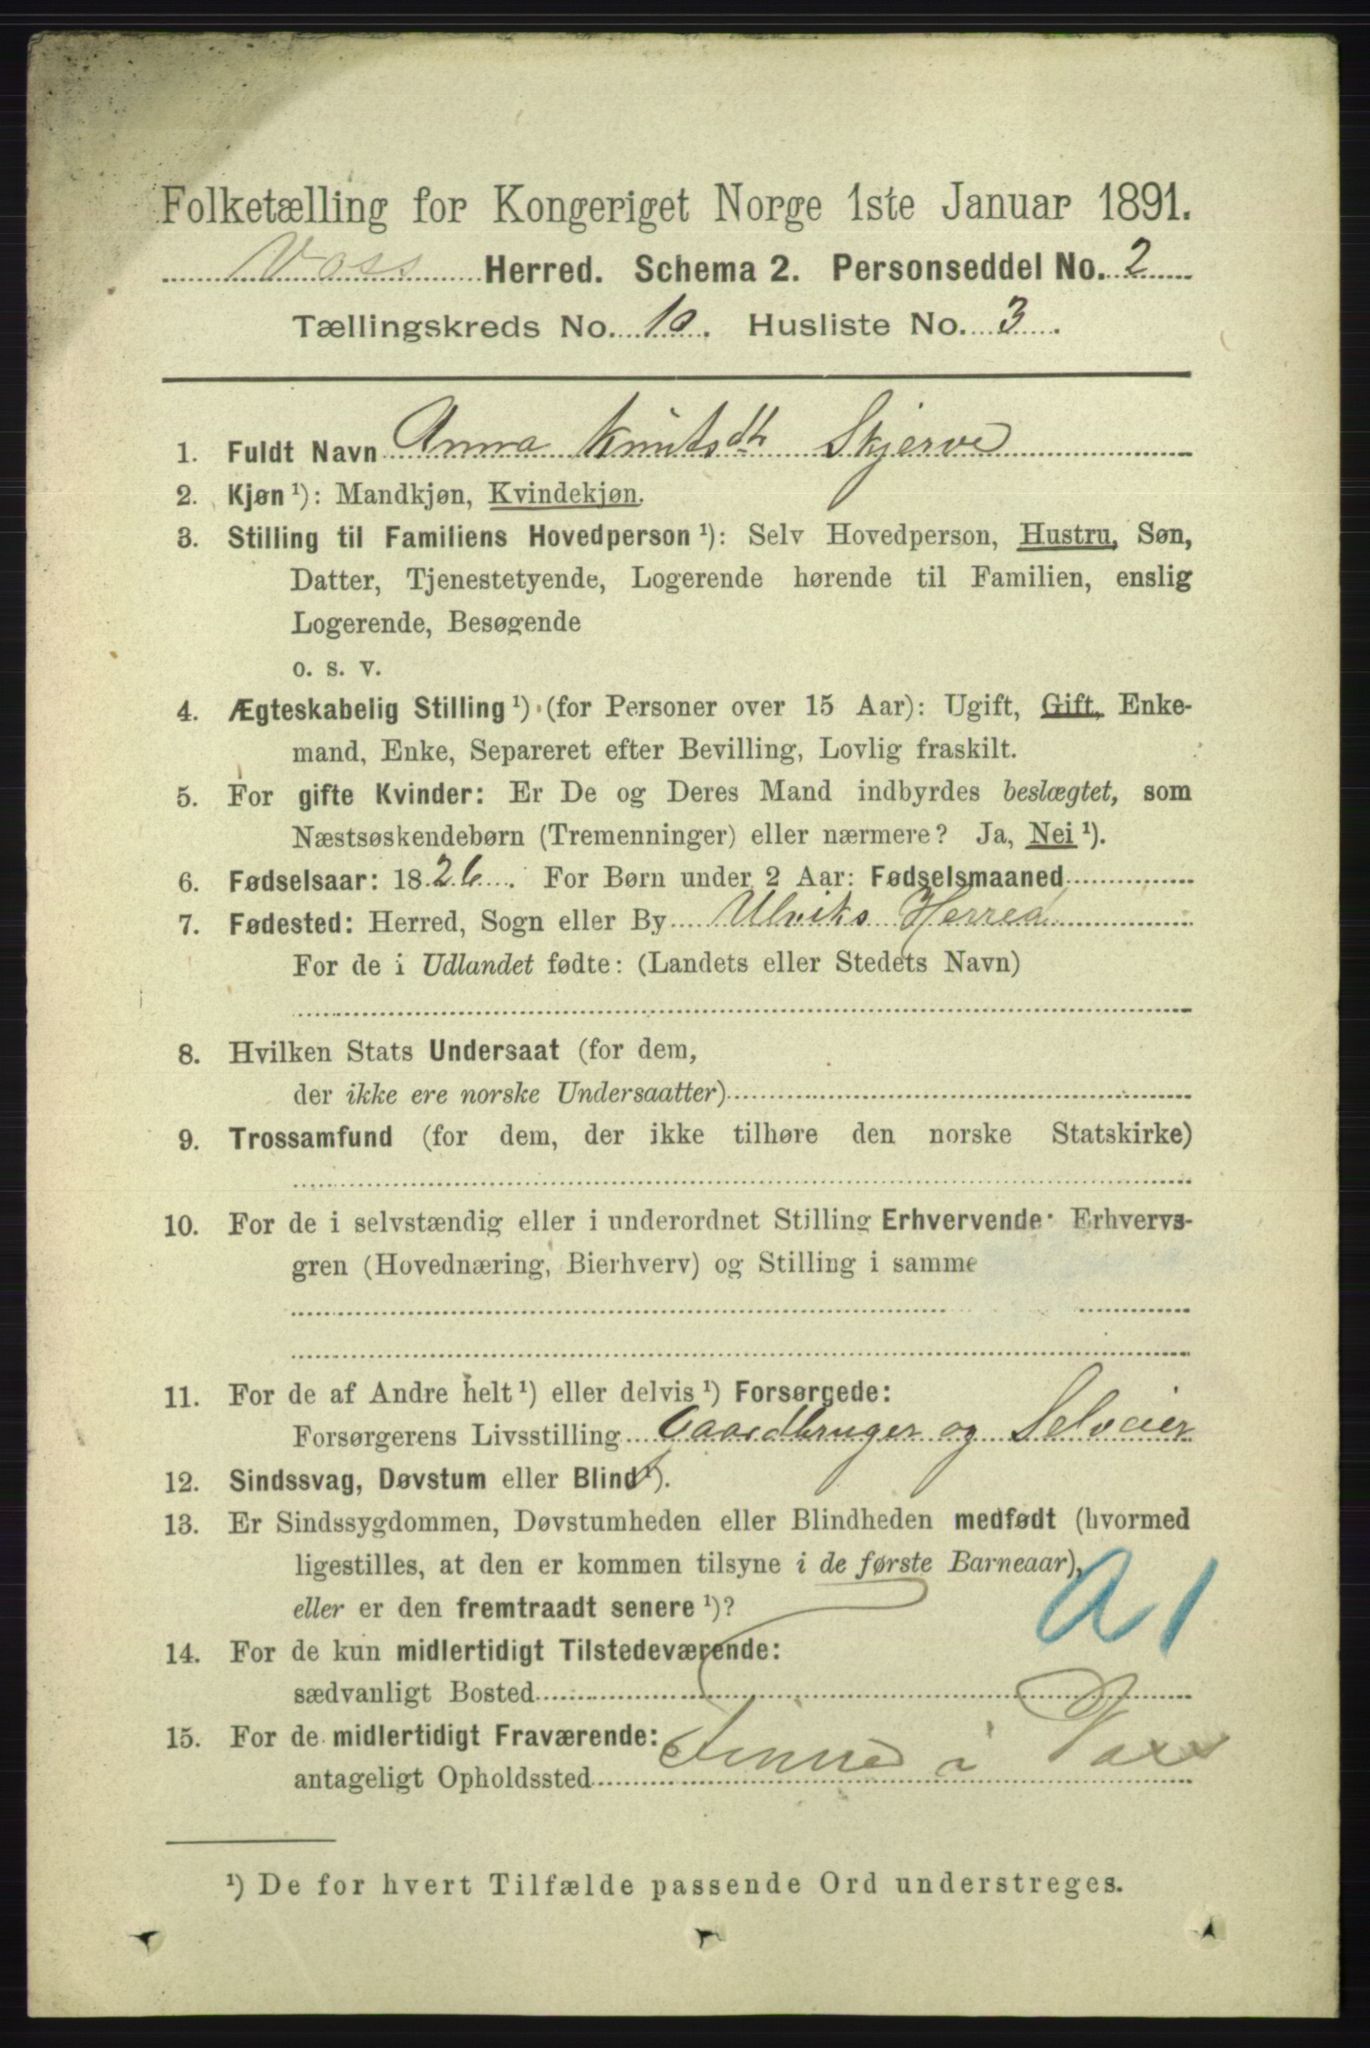 Folketælling for Kongeriget Norge 1ste Januar 1891.
Voss Herred. Schema 2. Personseddel No. 2
Tællingskreds No. 10. Husliste No. 3.
1. Fuldt Navn Anna Knutsdtr Skjerve
2. Kjøn ¹): Mandkjøn, Kvindekjøn.
3. Stilling til Familiens Hovedperson ¹): Selv Hovedperson, Hustru, Søn,
Datter, Tjenestetyende, Logerende hørende til Familien, enslig
Logerende, Besøgende
o. s. v.
4. Ægteskabelig Stilling ¹) (for Personer over 15 Aar): Ugift, Gift, Enke-
mand, Enke, Separeret efter Bevilling, Lovlig fraskilt.
5. For gifte Kvinder: Er De og Deres Mand indbyrdes beslægtet, som
Næstsøskendebørn (Tremenninger) eller nærmere? Ja, Nei ¹).
6. Fødselsaar: 1826. For Børn under 2 Aar: Fødselsmaaned
7. Fødested: Herred, Sogn eller By Ulviks Herred
For de i Udlandet fødte: (Landets eller Stedets Navn)
8. Hvilken Stats Undersaat (for dem,
der ikke ere norske Undersaatter)
9. Trossamfund (for dem, der ikke tilhøre den norske Statskirke)
10. For de i selvstændig eller i underordnet Stilling Erhvervende: Erhvervs-
gren (Hovednæring, Bierhverv) og Stilling i samme
11. For de af Andre helt ¹) eller delvis ¹) Forsørgede:
Forsørgerens Livsstilling Gaardbruger og Selveier
12. Sindssvag, Døvstum eller Blind ¹).
13. Er Sindssygdommen, Døvstumheden eller Blindheden medfødt (hvormed
ligestilles, at den er kommen tilsyne i de første Barneaar),
eller er den fremtraadt senere ¹)?
A 1
14. For de kun midlertidigt Tilstedeværende:
sædvanligt Bosted
15. For de midlertidigt Fraværende:
antageligt Opholdssted i Voss
¹) De for hvert Tilfælde passende Ord understreges.